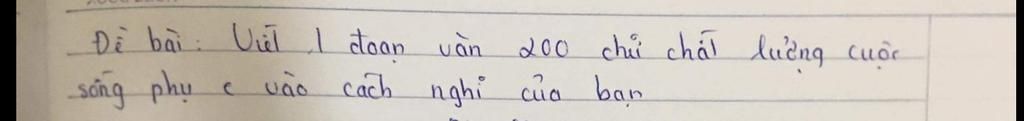 Đề bài: Viết 1 đoạn văn 200 chữ chất lượng cuộc
sống phụ c vào cách nghĩ của bạn